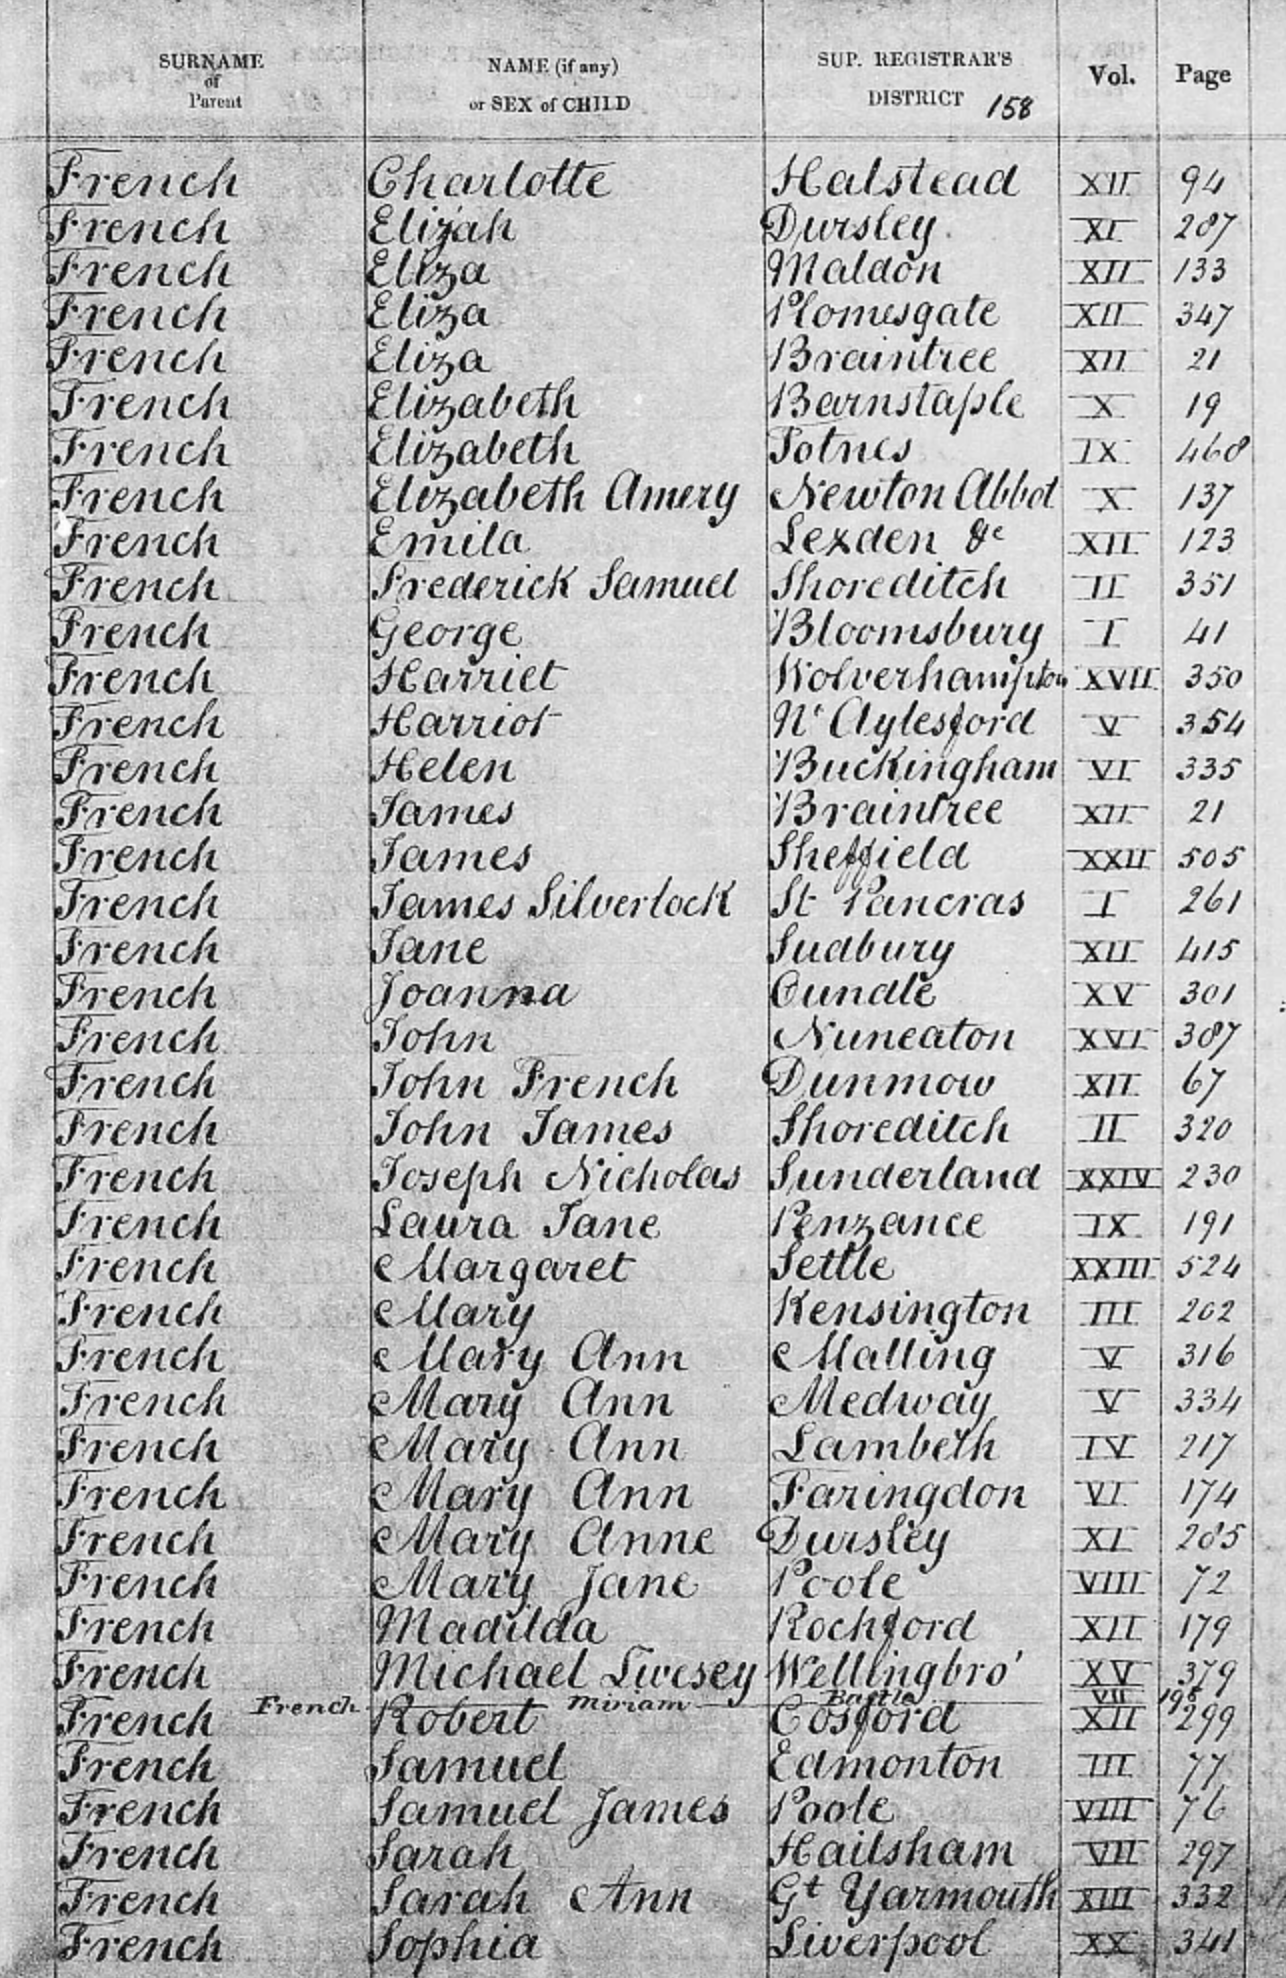 SURNAME of Parent NAME (if any) or SEX of CHILD SUP. REGISTRAR'S DISTRICT 158 Vol. Page
French Charlotte Halstead XII 94
French Elizah Dursley XI 287
French Eliza Maldon XII 133
French Eliza Plomesgate XII 347
French Eliza Braintree XII 21
French Elizabeth Barnstaple X 19
French Elizabeth Totnes IX 468
French Elizabeth Amery Newton Abbot X 137
French Emila Lexden &c XII 123
French Frederick Samuel Shoreditch II 351
French George Bloomsbury I 41
French Harriet Wolverhampton XVII 350
French Harriot Nth Aylesford V 354
French Helen Buckingham VI 335
French James Braintree XII 21
French James Sheffield XXII 505
French James Silverlock St Pancras I 261
French Jane Sudbury XII 415
French Joanna Oundle XV 301
French John Nuneaton XVI 387
French John French Dunmow XII 67
French John James Shoreditch II 320
French Joseph Nicholas Sunderland XXIV 230
French Laura Jane Penzance IX 191
French Margaret Settle XXIII 524
French Mary Kensington III 202
French Mary Ann Malling V 316
French Mary Ann Medway V 334
French Mary Ann Lambeth IV 217
French Mary Ann Faringdon VI 174
French Mary Anne Dursley XI 285
French Mary Jane Poole VIII 72
French Madilda Rochford XII 179
French Michael Livesey Wellingbro' XV 379
French Miriam Battle VII
French Robert Cosford XII 299
French Samuel Edmonton III 77
French Samuel James Poole VIII 76
French Sarah Hailsham VII 297
French Sarah Ann Gt Yarmouth XIII 332
French Sophia Liverpool XX 341